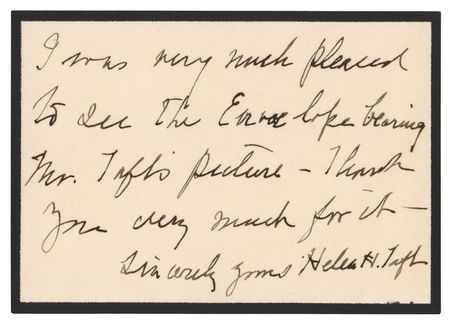 I was very much pleased
to see the Envelope bearing
Mr. Taft's picture – Thank
you very much for it –
Sincerely yours Helen H. Taft